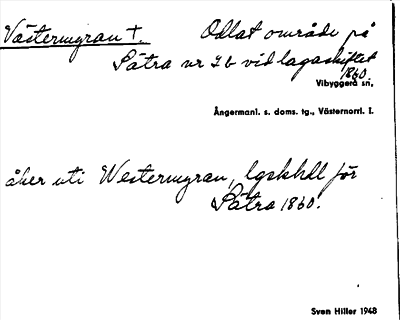 Västermyran †. Odlat område på
Sätra nr 2b vid lagaskiftet
1860.
Vibyggerå sn,
Ångermanl. s. doms. tg., Västernorrl. l.
åker uti Westermyran, lgskhdl för
Sätra 1860.
Sven Hiller 1948